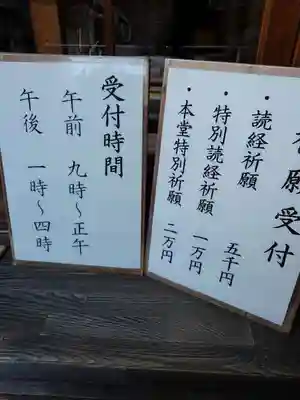 受付時間
午前 九時～正午
午後 一時～四時
願受付
・読経祈願 五千円
・特別読経祈願 一万円
・本堂特別祈願 二万円